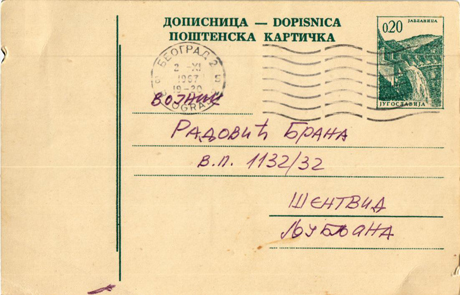 ДОПИСНИЦА — DOPISNICA
ПОШТЕНСКА КАРТИЧКА
JABLANICA
0,20
ЈУГОСЛАВИЈА
БЕОГРАД 2
2 XI
1967
19-20
BEOGRAD
ВОЈНИК
РАДОВИЋ БРАНА
В.П. 1132/32
ШЕНТВИД
ЉУБЉАНА